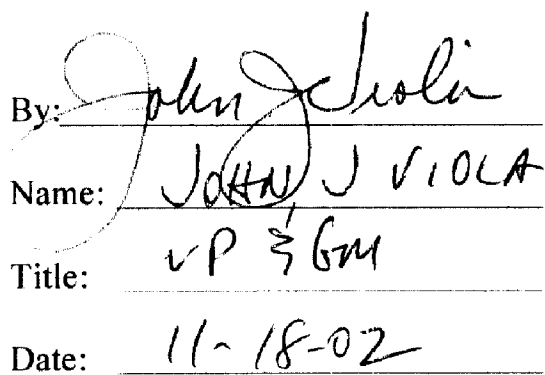 By: John J Viola
Name: JOHN J VIOLA
Title: VP & GM
Date: 11-18-02